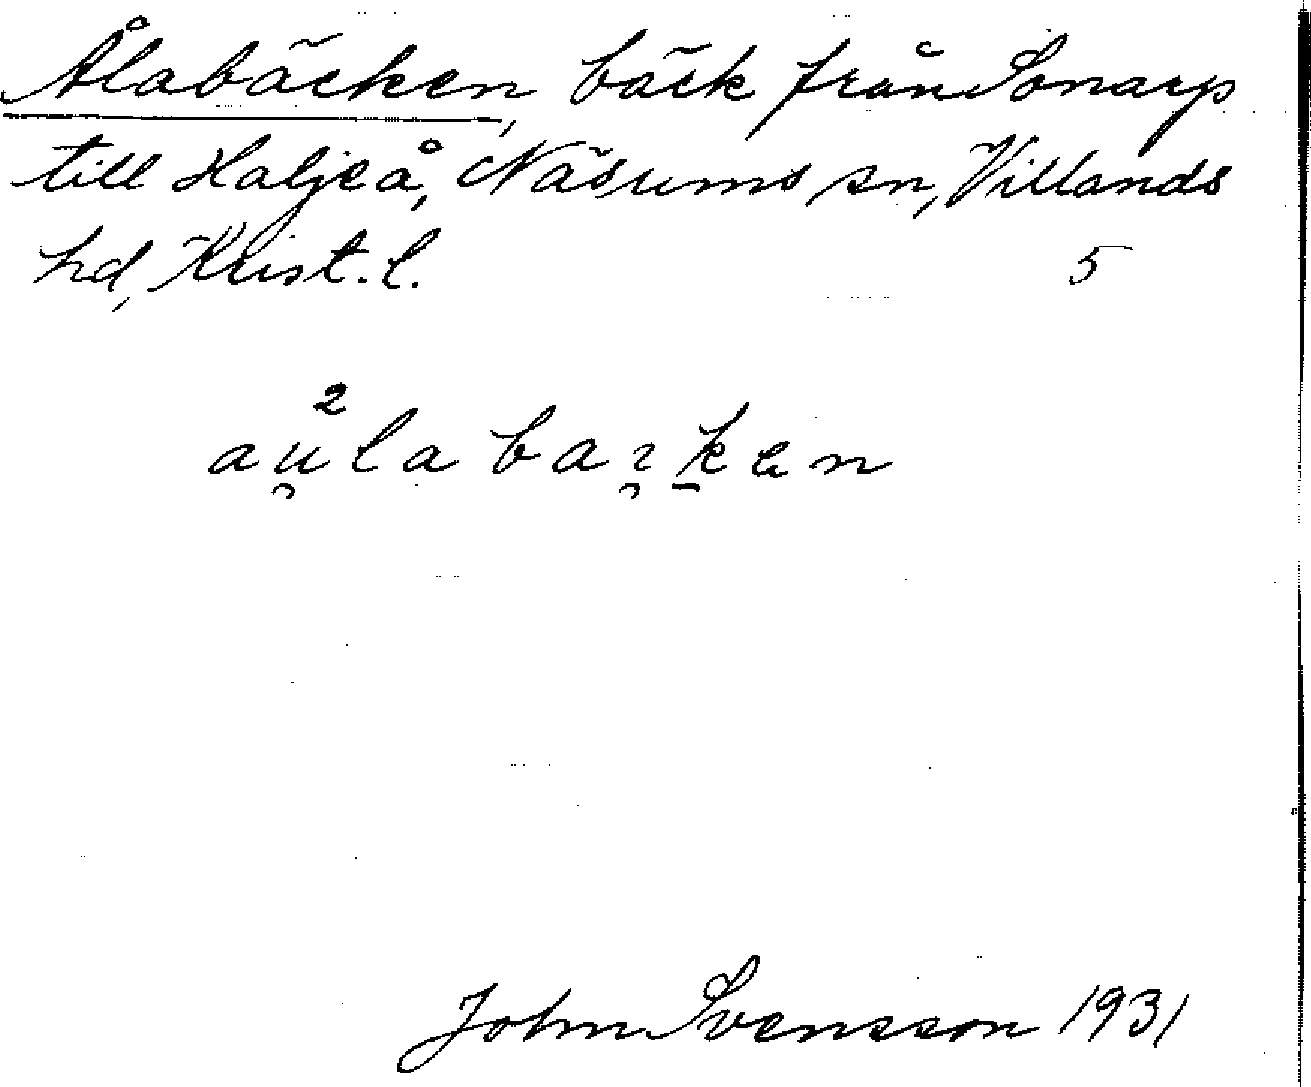 Ålabäcken, bäck från Sonarp
till Haljeå, Näsums sn, Villands
hd, Krist. l. 5
2
au̯laba
John Svensson 1931